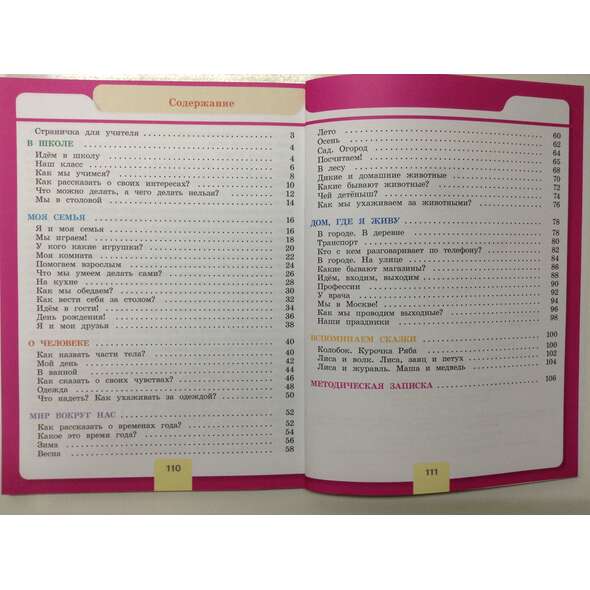 Содержание
Страничка для учителя 3
В ШКОЛЕ 4
Идём в школу 4
Наш класс 6
Как мы учимся? 8
Как рассказать о своих интересах? 10
Что можно делать, а чего делать нельзя? 12
Мы в столовой 14
МОЯ СЕМЬЯ 16
Я и моя семья 16
Мы играем! 18
У кого какие игрушки? 20
Моя комната 22
Помогаем взрослым 24
Что мы умеем делать сами? 26
На кухне 28
Как мы обедаем? 30
Как вести себя за столом? 32
Идём в гости! 34
День рождения! 36
Я и мои друзья 38
О ЧЕЛОВЕКЕ 40
Как назвать части тела? 40
Мой день 42
В ванной 44
Как сказать о своих чувствах? 46
Одежда 48
Что надеть? Как ухаживать за одеждой? 50
МИР ВОКРУГ НАС 52
Как рассказать о временах года? 52
Какое это время года? 54
Зима 56
Весна 58
110
Лето 60
Осень 62
Сад. Огород 64
Посчитаем! 65
В лесу 68
Дикие и домашние животные 70
Какие бывают животные? 72
Чей детёныш? 74
Как мы ухаживаем за животными? 76
ДОМ, ГДЕ Я ЖИВУ 78
В городе. В деревне 78
Транспорт 80
Кто с кем разговаривает по телефону? 82
В городе. На улице 84
Какие бывают магазины? 86
Идём, входим, выходим 88
Профессии 90
У врача 92
Мы в Москве! 94
Как мы проводим выходные? 96
Наши праздники 98
ВСПОМИНАЕМ СКАЗКИ 100
Колобок. Курочка Ряба 100
Лиса и волк. Лиса, заяц и петух 102
Лиса и журавль. Маша и медведь 104
МЕТОДИЧЕСКАЯ ЗАПИСКА 106
111